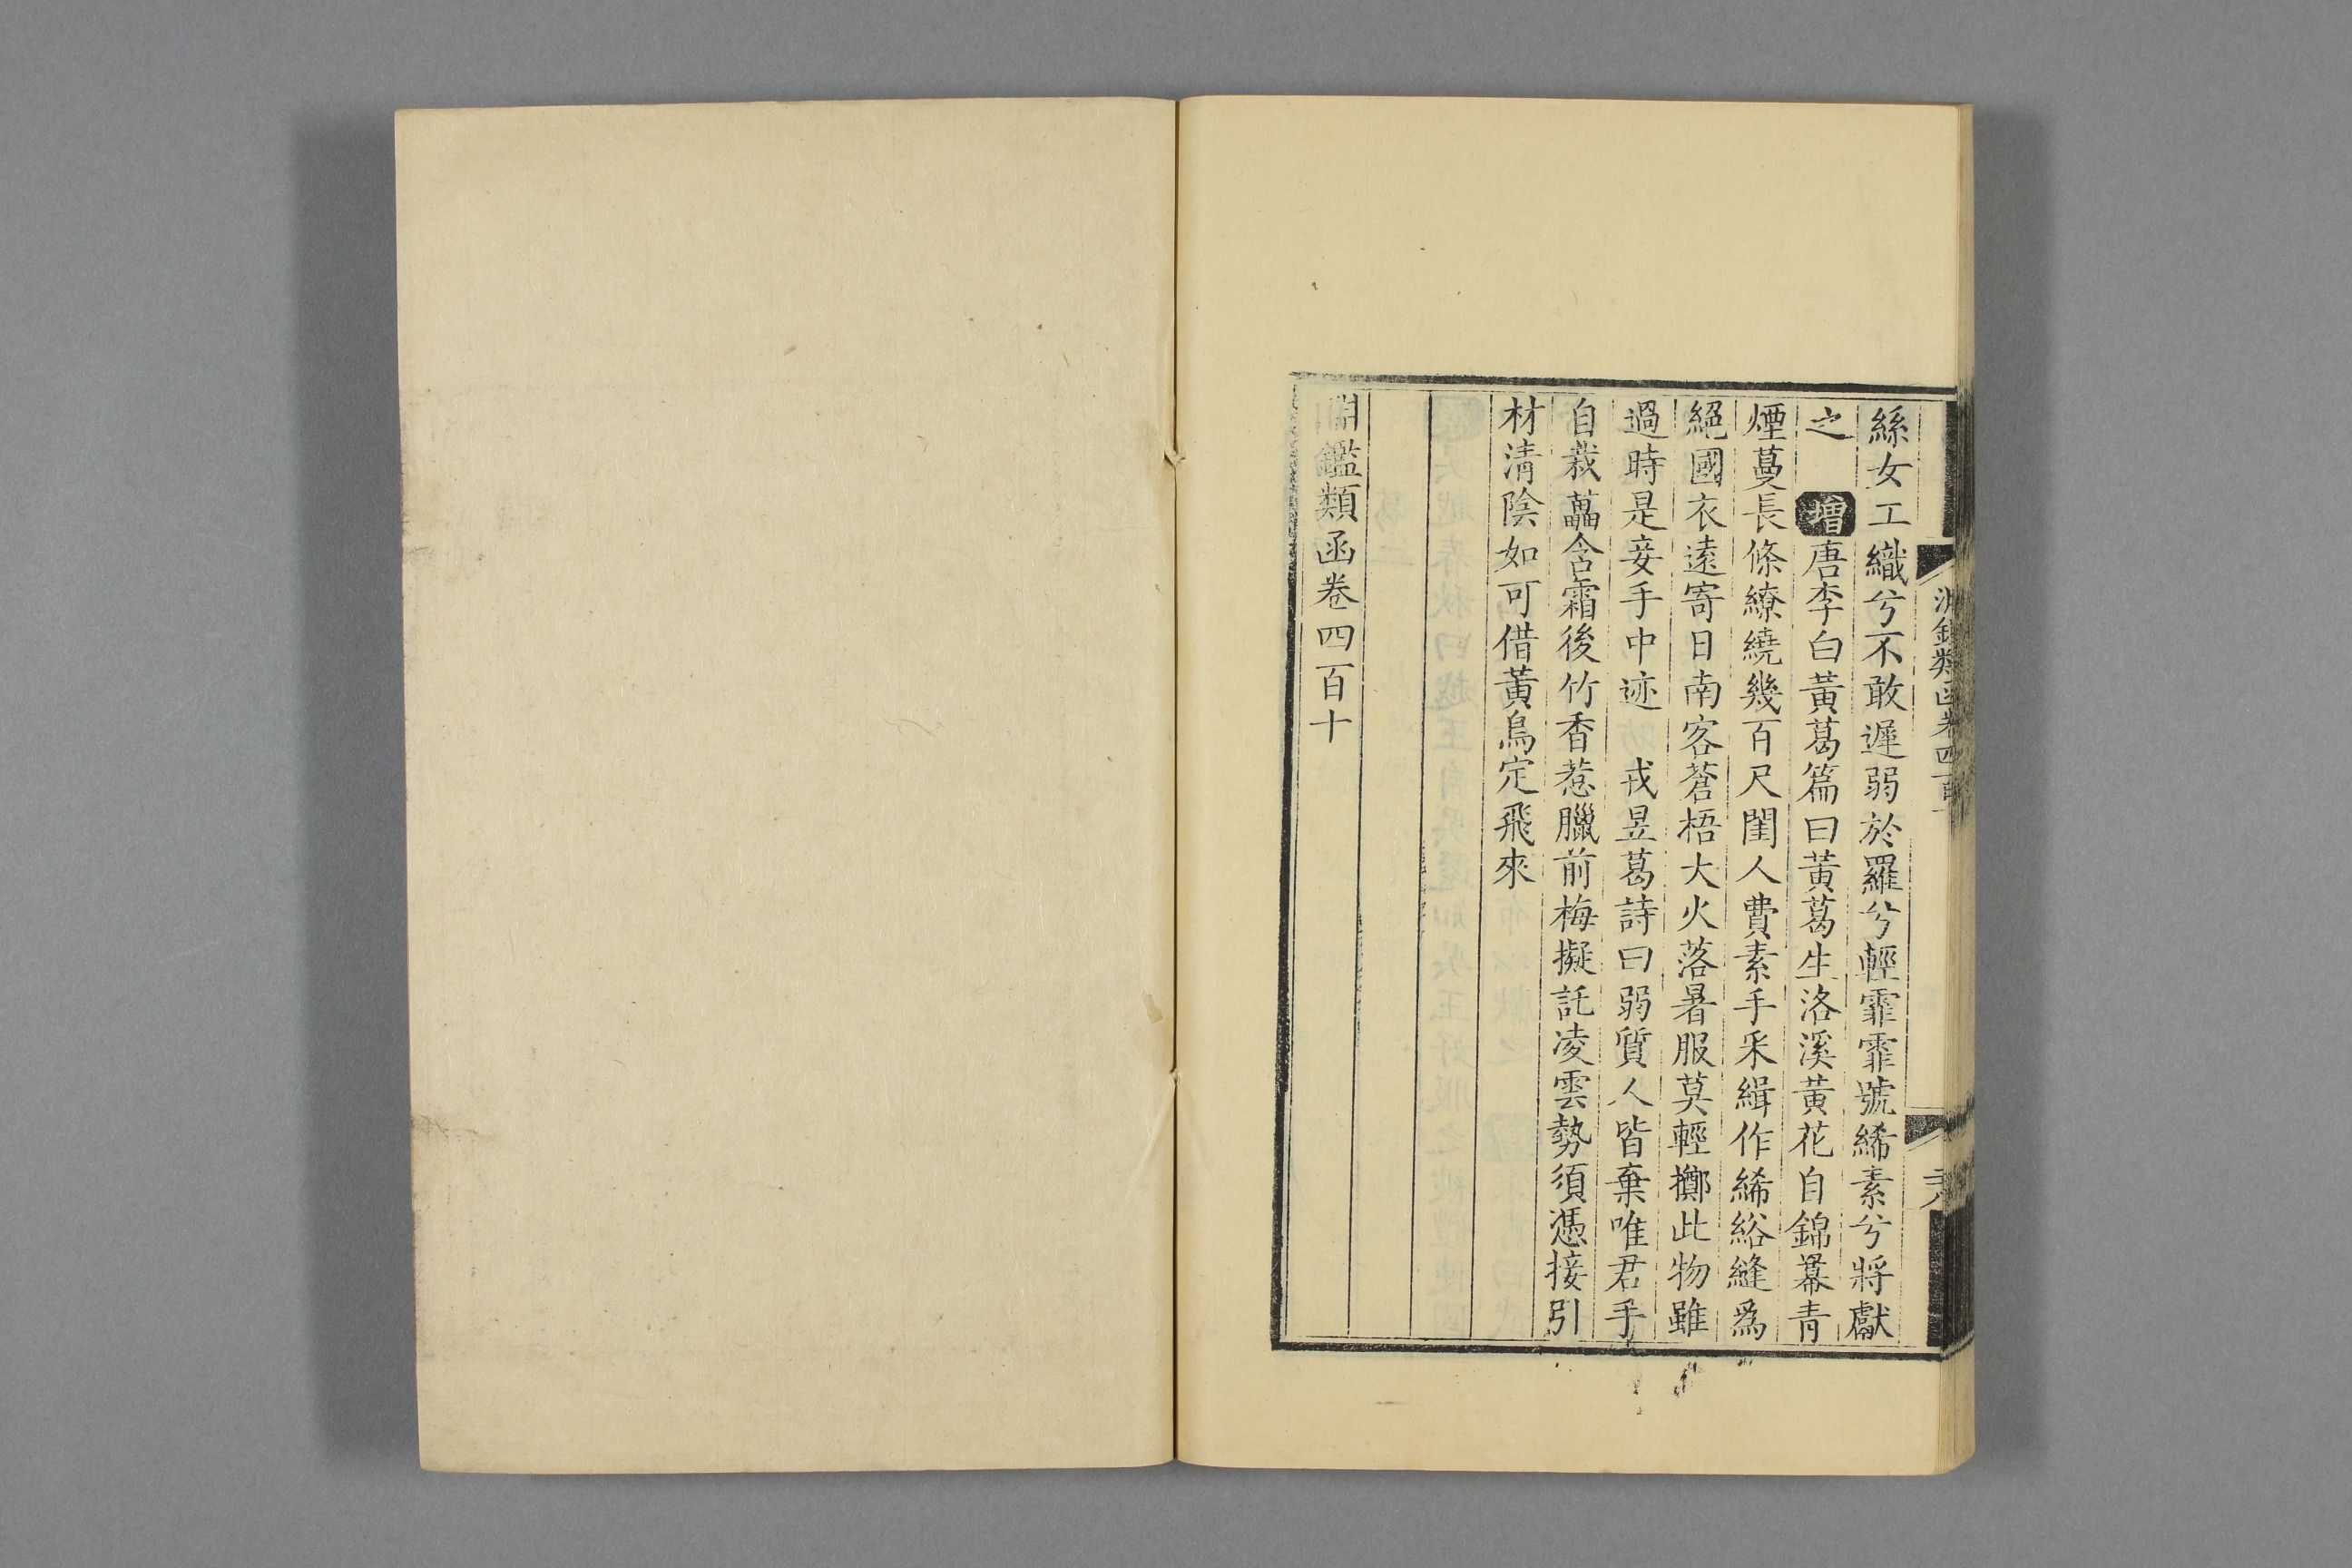 淵鑑類函卷四百十
二八
絲女工織兮不敢遲弱於羅兮輕霏霏號絺素兮將獻
之 增唐李白黃葛篇曰黃葛生洛溪黃花自錦冪青
煙蔓長條繚繞幾百尺閨人費素手采緝作絺綌縫爲
絕國衣遠寄日南客蒼梧大火落暑服莫輕擲此物雖
過時是妾手中迹 戎昱葛詩曰弱質人皆棄唯君手
自栽藟含霜後竹香惹臘前梅擬託凌雲勢須憑接引
材清陰如可借黃鳥定飛來
淵鑑類函卷四百十